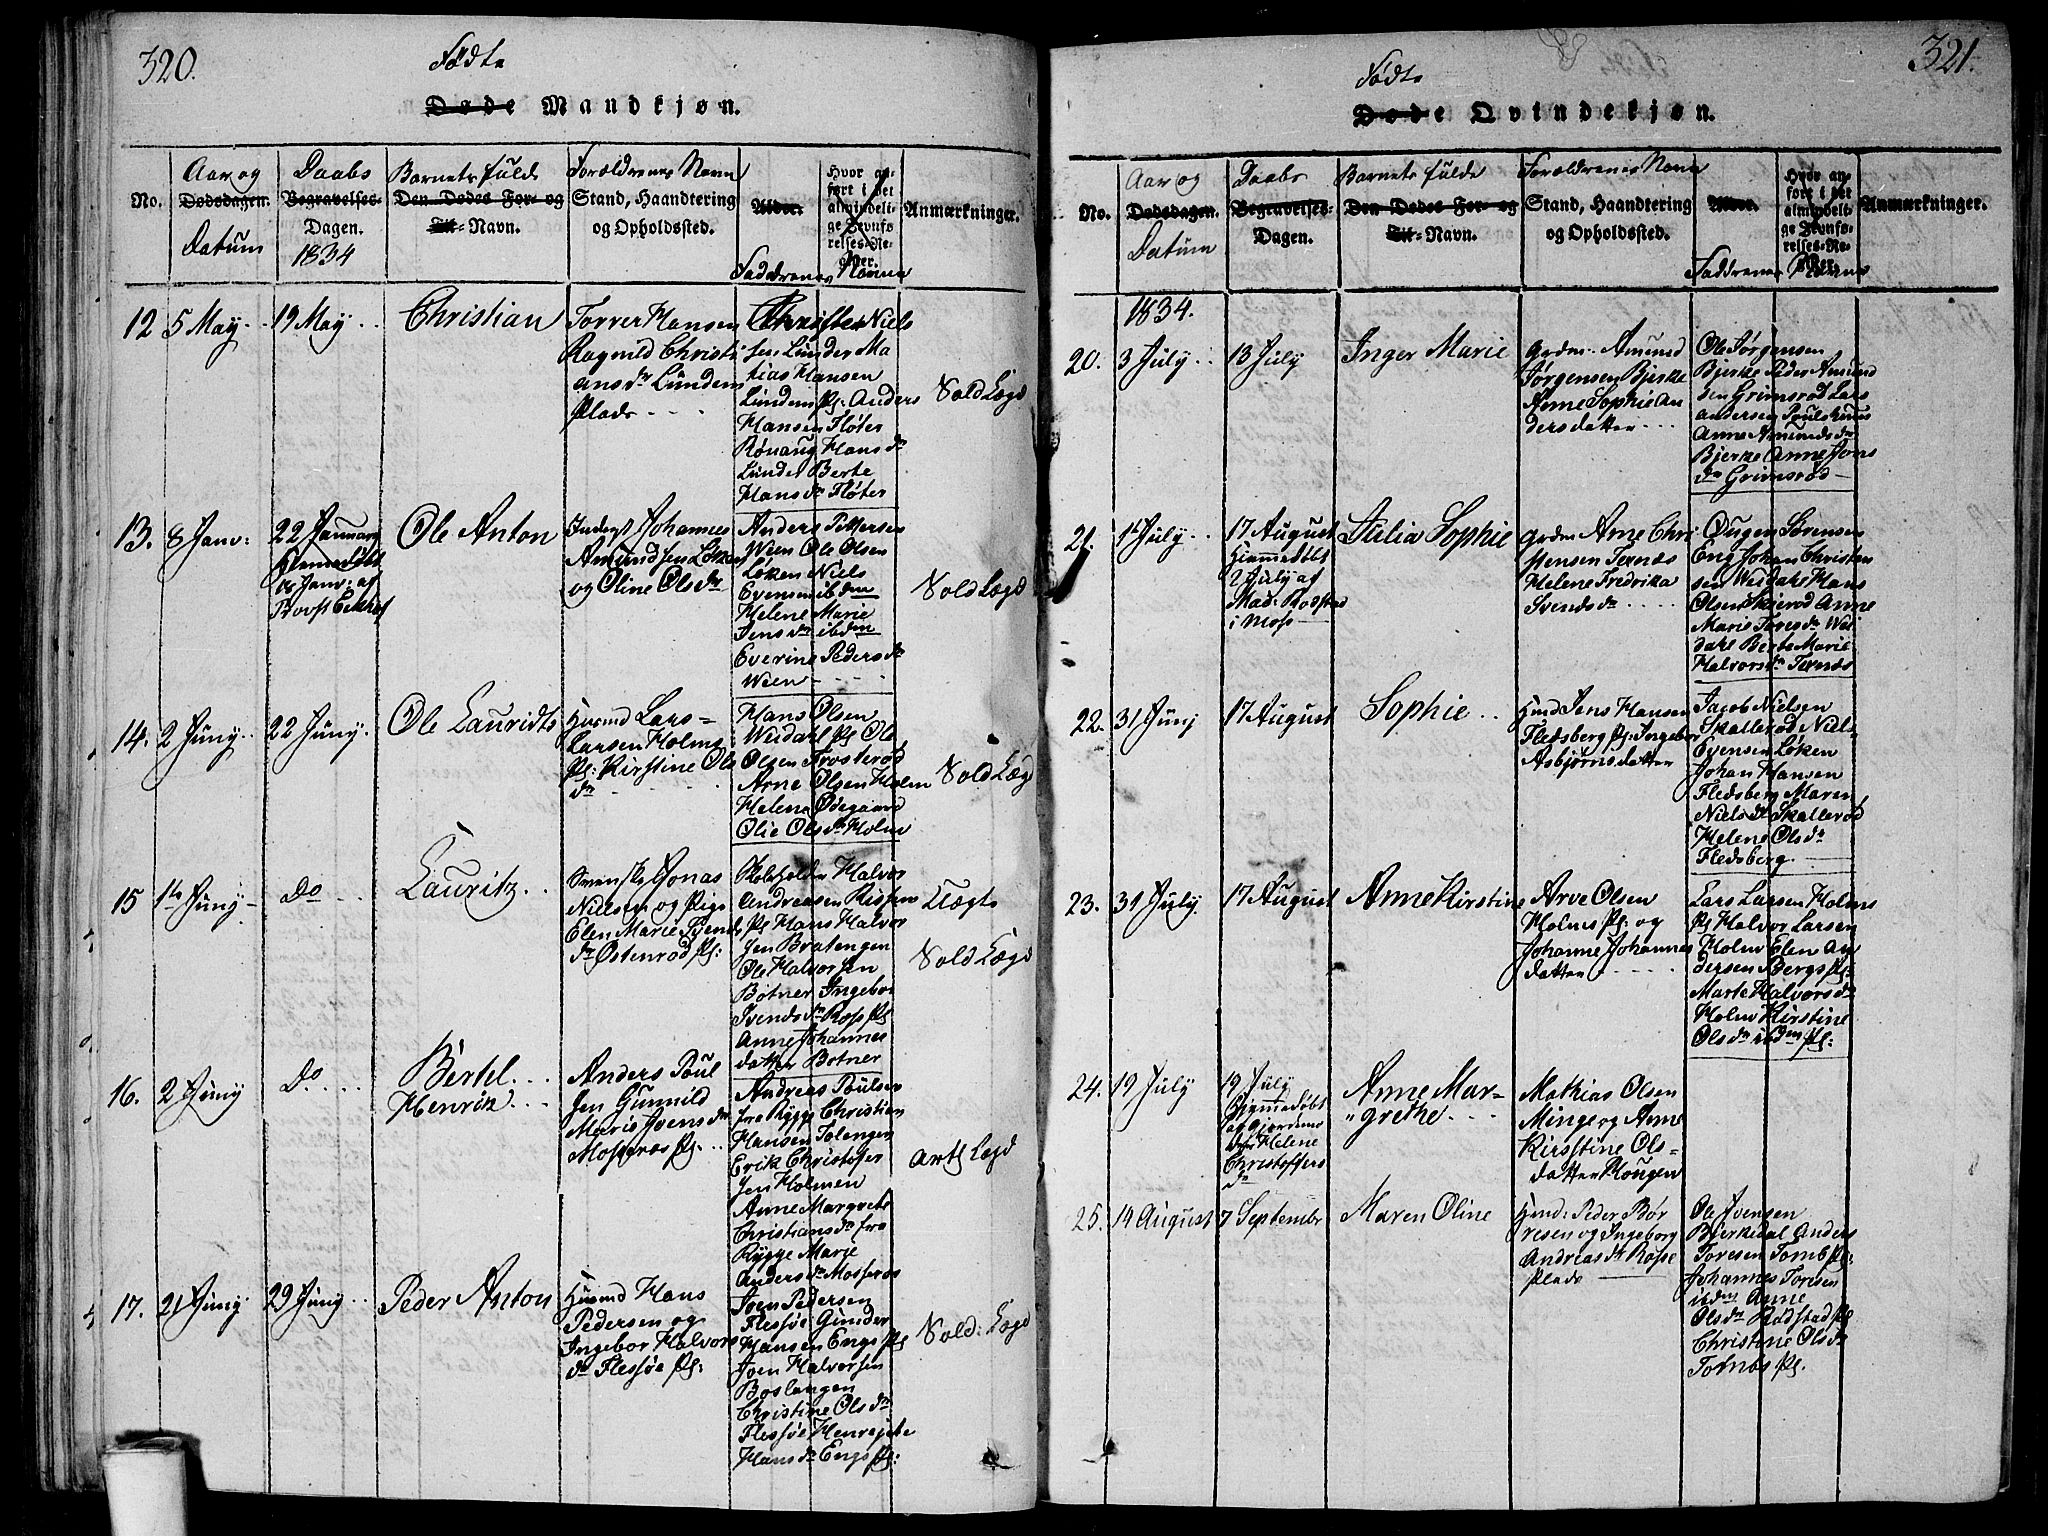 320.
Födte
Døde Mandkjøn.
No.
Aar og
Dødsdagen.
Datum
Daabs
Begravelses-
Dagen.
1834
Barnets fulde
Den Dødes For- og
Til-Navn.
Forældrenes Navn
Stand, Haandtering
og Opholdssted.
Alder.
Hvor an-
ført i det
almindeli-
ge Jevnfø-
relses-Re-
gister.
Faddrenes Navne
Anmærkninger.
12
5 May
19 May
Christian
Torrer Hansen
Ragnild Christi
ans dr Lunden
Plads
Niels
sen Lunder Ma
thias Hansen
Lunden Pl: Anders
Hansen Fløter
Rønaug Hans dr
Lunder Berte
Hans dr Fløter
Sold Lægd
13.
8 Janv:
22 Januar
Hjemmedøbt
Janv: af
Provst
Ole Anton
Johannes
Amundsen Løken
og Oline Ols dr
Anders Pettersen
Wien Ole Olsen
Løken Niels
Evensen ibdm
Helene Marie
Jens dr ibdm
Everine Peders dr
Wien
Sold Lægd
14.
2 Juny
22 Juny
Ole Lauridts
Husmd Lars
Larsen Holms
Pl: Kirstine Ols
dr
Hans Olsen
Weidahl Pl Ole
Olsen Frosterød
Arne Olsen Holm
Helene Ødegaard
Olie Ols dr Holm
Sold Lægd
15
14 Juny
Do
Lauritz
Svenske Jonas
Nielsen og Pige
Elen Marie Svends
dr Østenrød Pl:
Skoleholder Halvor
Andreasen
Pl Hans Halvor
sen Bratengen
Ole Halvorsen
Botner Ingebor
Svends dr Ross Pl
Anne Johannes
datter Botner
Uægte
Sold Lægd
16.
2 Juny
Do
Bertel
Henrik
Anders Poul
sen Gunnild
Marie Svens dr
Mosserøs Pl:
Andreas Poulsen
fra Rygge Christian
Hansen Solengen
Erik Christofer
sen Holmen
Anne Margrete
Christians dr fra
Rygge Marie
Anders dr Mosserøs
Artl Lægd
17.
21 Juny
29 Juny
Peder Anton
Husmd Hans
Pedersen og
Ingebor Halvors
dr Flessøe Pl:
Sven Pedersen
Flessøe Gunder
Hansen Engs Pl
Sven Halvorsen
Boslangen
Christine Ols dr
Flessøe Henrejete
Hans dr Engs Pl:
Sold: Lægd
321.
Födte
Døde Qvindekjøn.
No.
Aar og
Dødsdagen.
Datum
Daabs
Begravelses-
Dagen.
Barnets fulde
Den Dødes For- og
Til-Navn.
Forældrenes Navn
Stand, Haandtering
og Opholdssted.
Alder.
Hvor an-
ført i det
almindeli-
ge Jevnfø-
relses-Re-
gister.
Faddrenes Navne
Anmærkninger.
1834.
20.
3 July
13 July
Inger Marie
Grdm. Amund
Jørgensen Bjerke
Anne Sophie An
dersdatter
Ole Jørgensen
Bjerke Peder Amund
sen Grimsrød Lars
Andersen Poulshuus
Anne Amunds dr
Bjerke Anne Jons
dr Grimsrød
21.
1t July
17 August
Hjemmedøbt
2 July af
Mad: Rodstad
i Moss
Julia Sophie
Grdm Arne Chri
stensen Ternæs
Helene Fredrika
Svends dr
Øugen Sørensen
Eng Johan Christen
sen Weidahl Hans
Olsen Skierød Anne
Marie Tores dr Wei
dahl Berte Marie
Halvors dr Ternæs
22.
31 Junj
17 August
Sophie
Husmd Jens Hansen
Fledsberg Pl: Ingebor
Asbjørnsdatter
Jacob Nielsen
Skallerød Niels
Evensen Løken
Johan Hansen
Fledsberg Maren
Niels dr Skallerød
Helene Ols dr
Fledsberg
23.
31 July
17 August
Anne Kirstine
Arve Olsen
Holms Pl: og
Johanne Johannes
datter
Lars Larsen Holms
Pl Halvor Larsen
Holm Elen An
dersen Bergs Pl:
Marte Halvors dr
Holm Kirstine
Ols dr ibdem Pl:
24.
19 July
19 July
Hjemmedøbt
af Gjordemo
der Helene
Christoffers
dr
Anne Mar-
grethe
Mathias Olsen
Minge og Anne
Kirstine Ols-
datter Hougen
25.
14 August
7 Septembr
Maren Oline
Husmd: Peder Bør
resen og Ingeborg
Andreas dr Rosse
Plads
Ole Svensen
Birkedal Anders
Toresen Tomb Pl:
Johannes Toresen
ibdm Anne
Ols dr Rodstad Pl
Christine Ols dr
Tombs Pl.